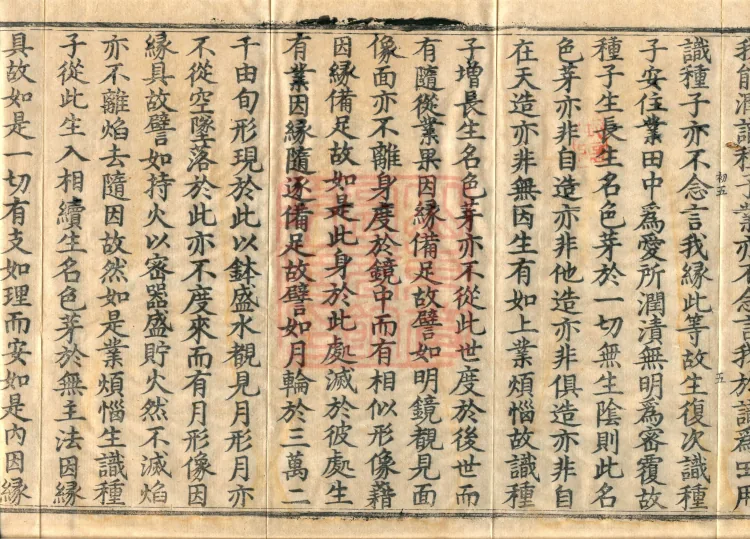 念言我於
初五
五
識種子亦不念言我緣此等故生復次識種
子安住業田中爲愛所潤漬無明爲密覆故
種子生長生名色芽於一切無生陰則此名
色芽亦非自造亦非他造亦非俱造亦非自
在天造亦非無因生有如上業煩惱故識種
子增長生名色芽亦不從此世度於後世而
有隨從業果因緣備足故譬如明鏡觀見面
像面亦不離身度於鏡中而有相似形像藉
因緣備足故如是此身於此處滅於彼處生
有業因緣隨逐備足故譬如月輪於三萬二
千由旬形現於此以鉢盛水觀見月形月亦
不從空墜落於此亦不度來而有月形像因
緣具故譬如持火以密器盛貯火然不滅焰
亦不離焰去隨因故然如是業煩惱生識種
子從此生入相續生名色芽於無主法因緣
具故如是一切有支如理而安如是内因緣